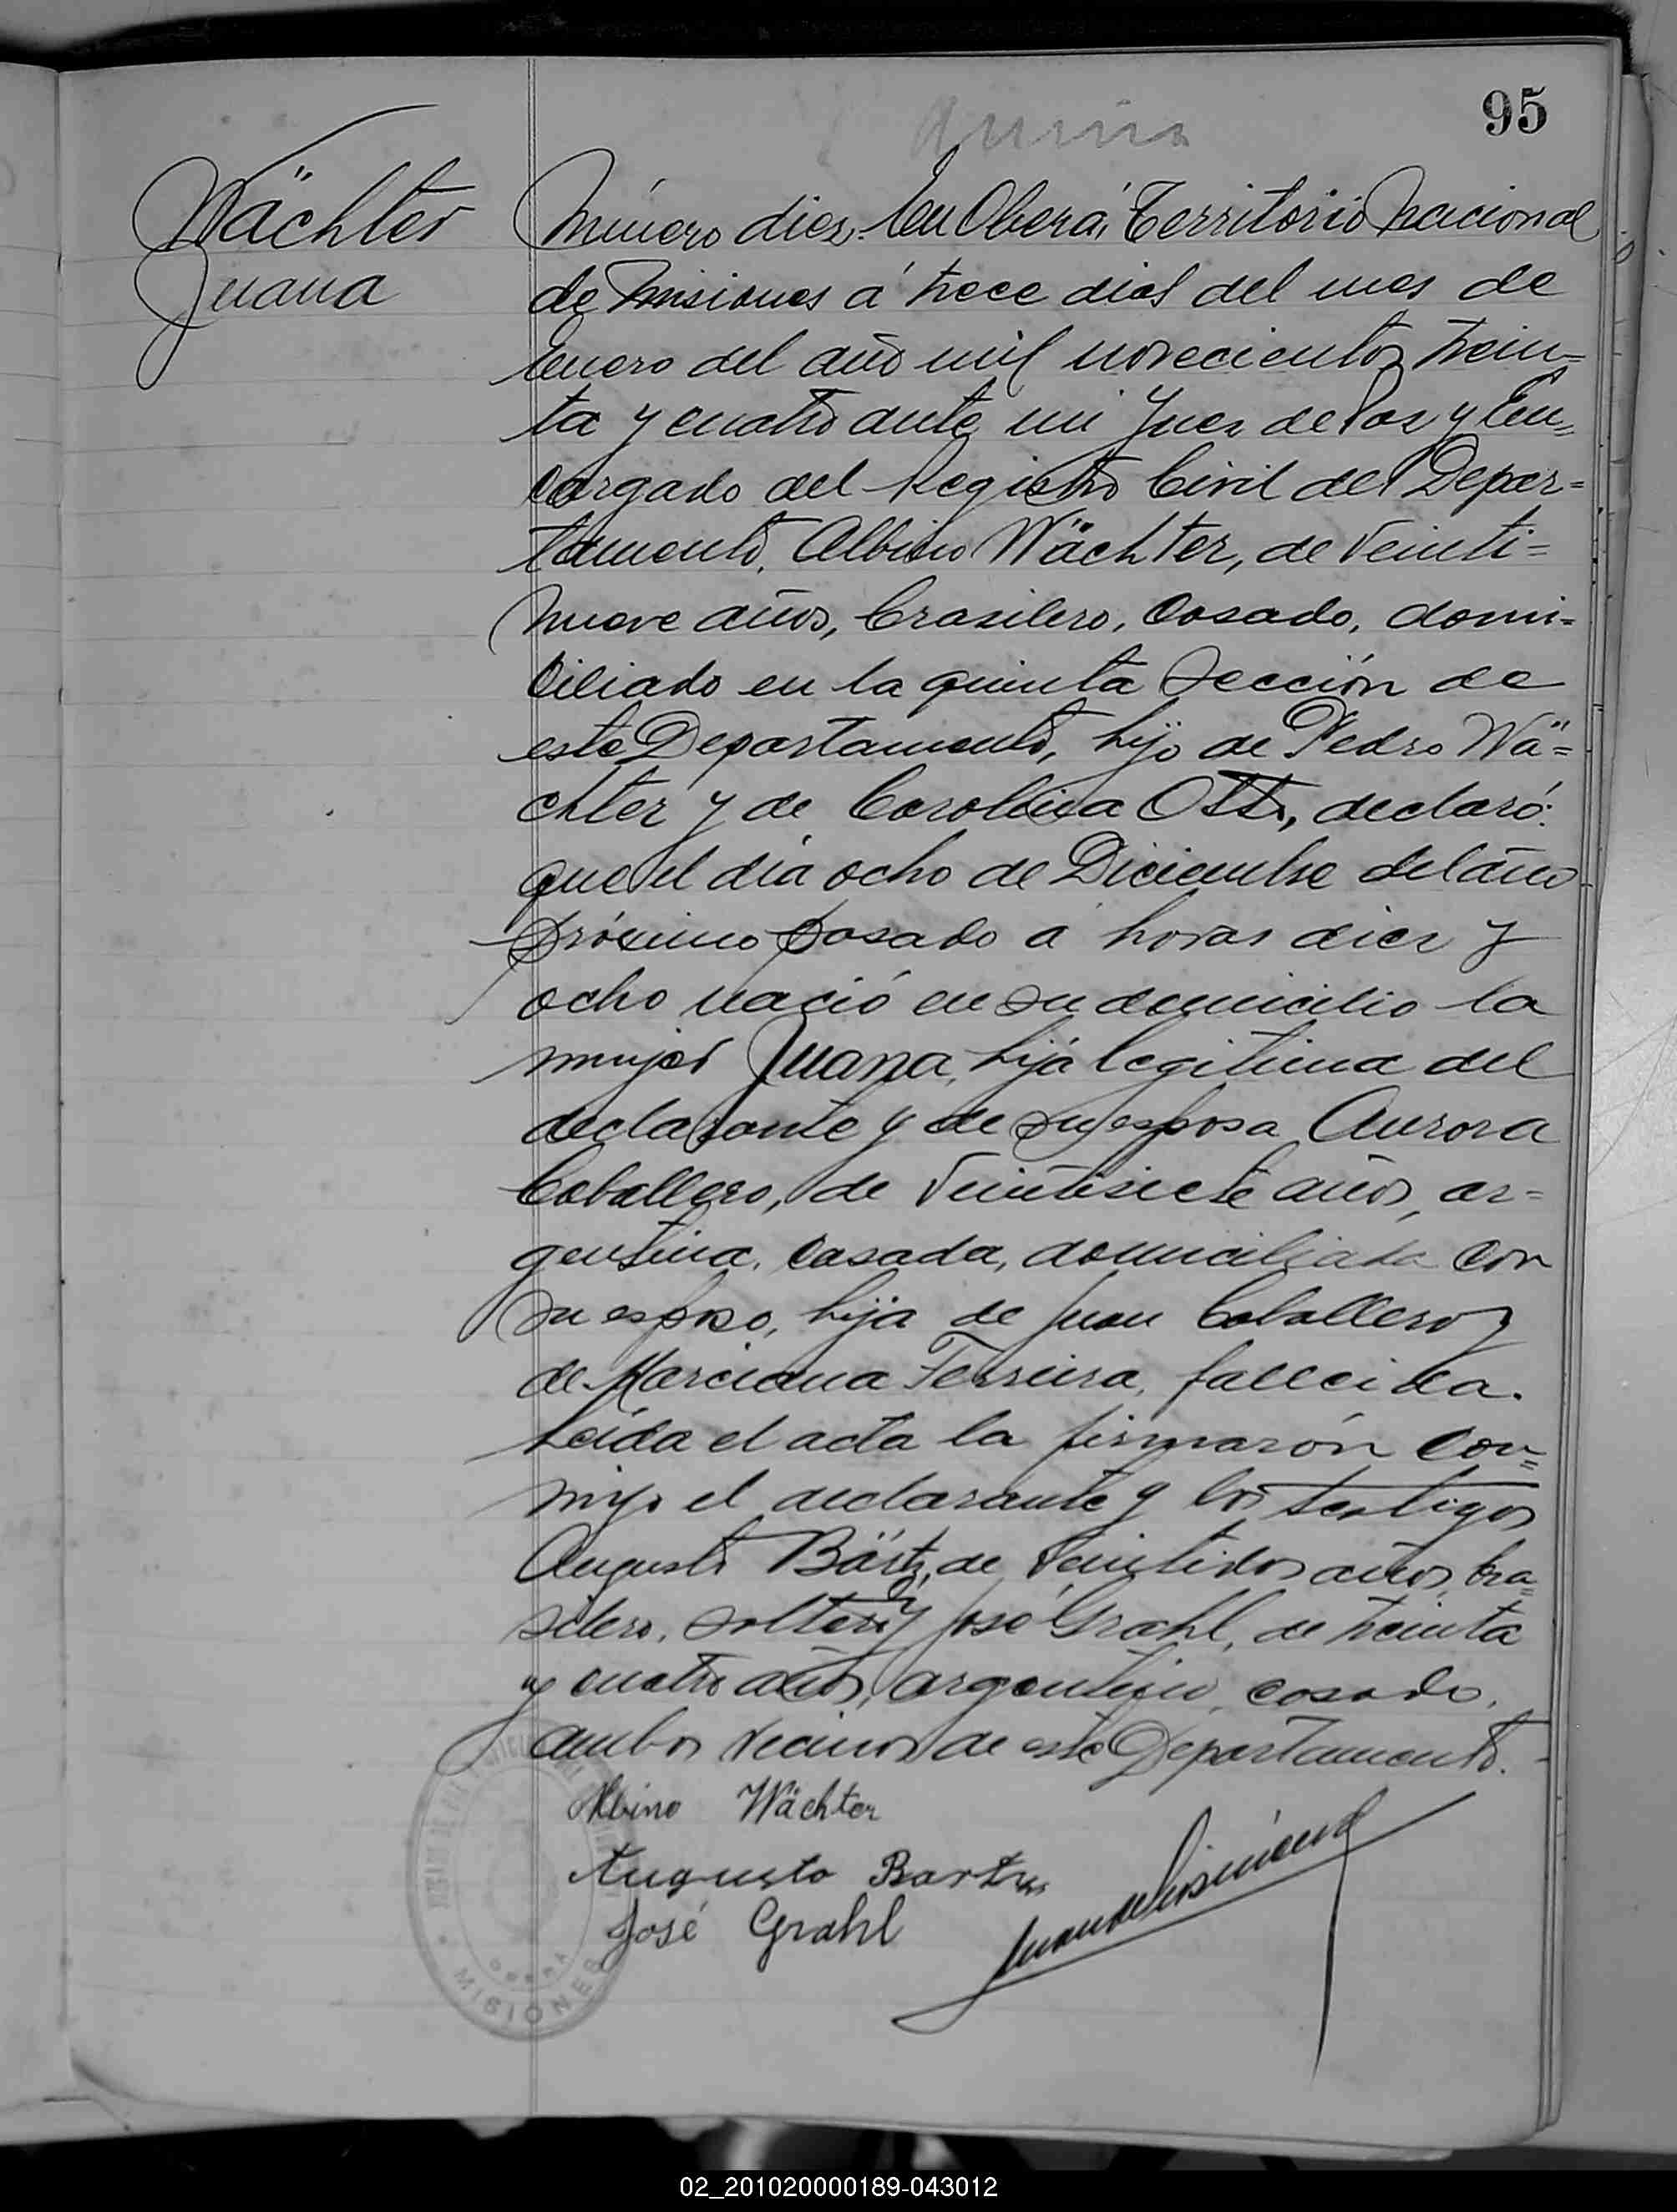 95
Wächter
Juana
Número diez. En Oberá, Territorio Nacional
de Misiones á trece dias del mes de
Enero del año mil novecientos trein=
ta y cuatro ante mi Juez de Paz y En=
cargado del Registro Civil del Depar=
tamento, Albino Wächter, de veinti=
nueve años, brasilero, casado, domi=
ciliado en la quinta Sección de
este Departamento, hijo de Pedro Wä=
chter y de Carolina Ott, declaró:
que el dia ocho de Diciembre del año
próximo pasado á horas diez y
ocho nació en su domicilio la
mujer Juana, hija legitima del
declarante y de su esposa Aurora
Caballero, de veintisiete años, ar=
gentina, casada, domiciliada con
su esposo, hija de Juan Caballero y
de Marciana Ferreira, fallecida.
Leída el acta la firmarón con=
migo el declarante y los testigos
Augusto Bärtz, de veintidos años, bra=
silero, soltero y José Grahl, de treinta
y cuatro años, argentino, casado,
ambos vecinos de este Departamento.
Albino Wächter
Augusto Bartz
José Grahl
MISIONES
02_201020000189-043012